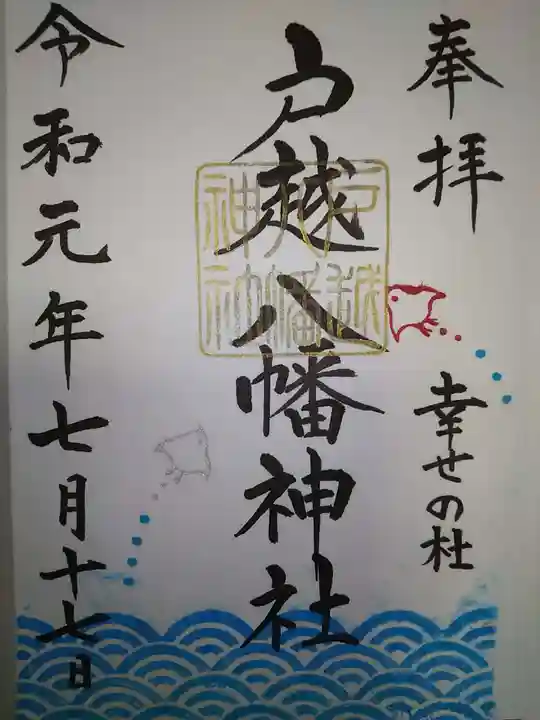 奉拝
幸せの杜
戸越八幡神社
戸越八幡神社
令和元年七月十七日